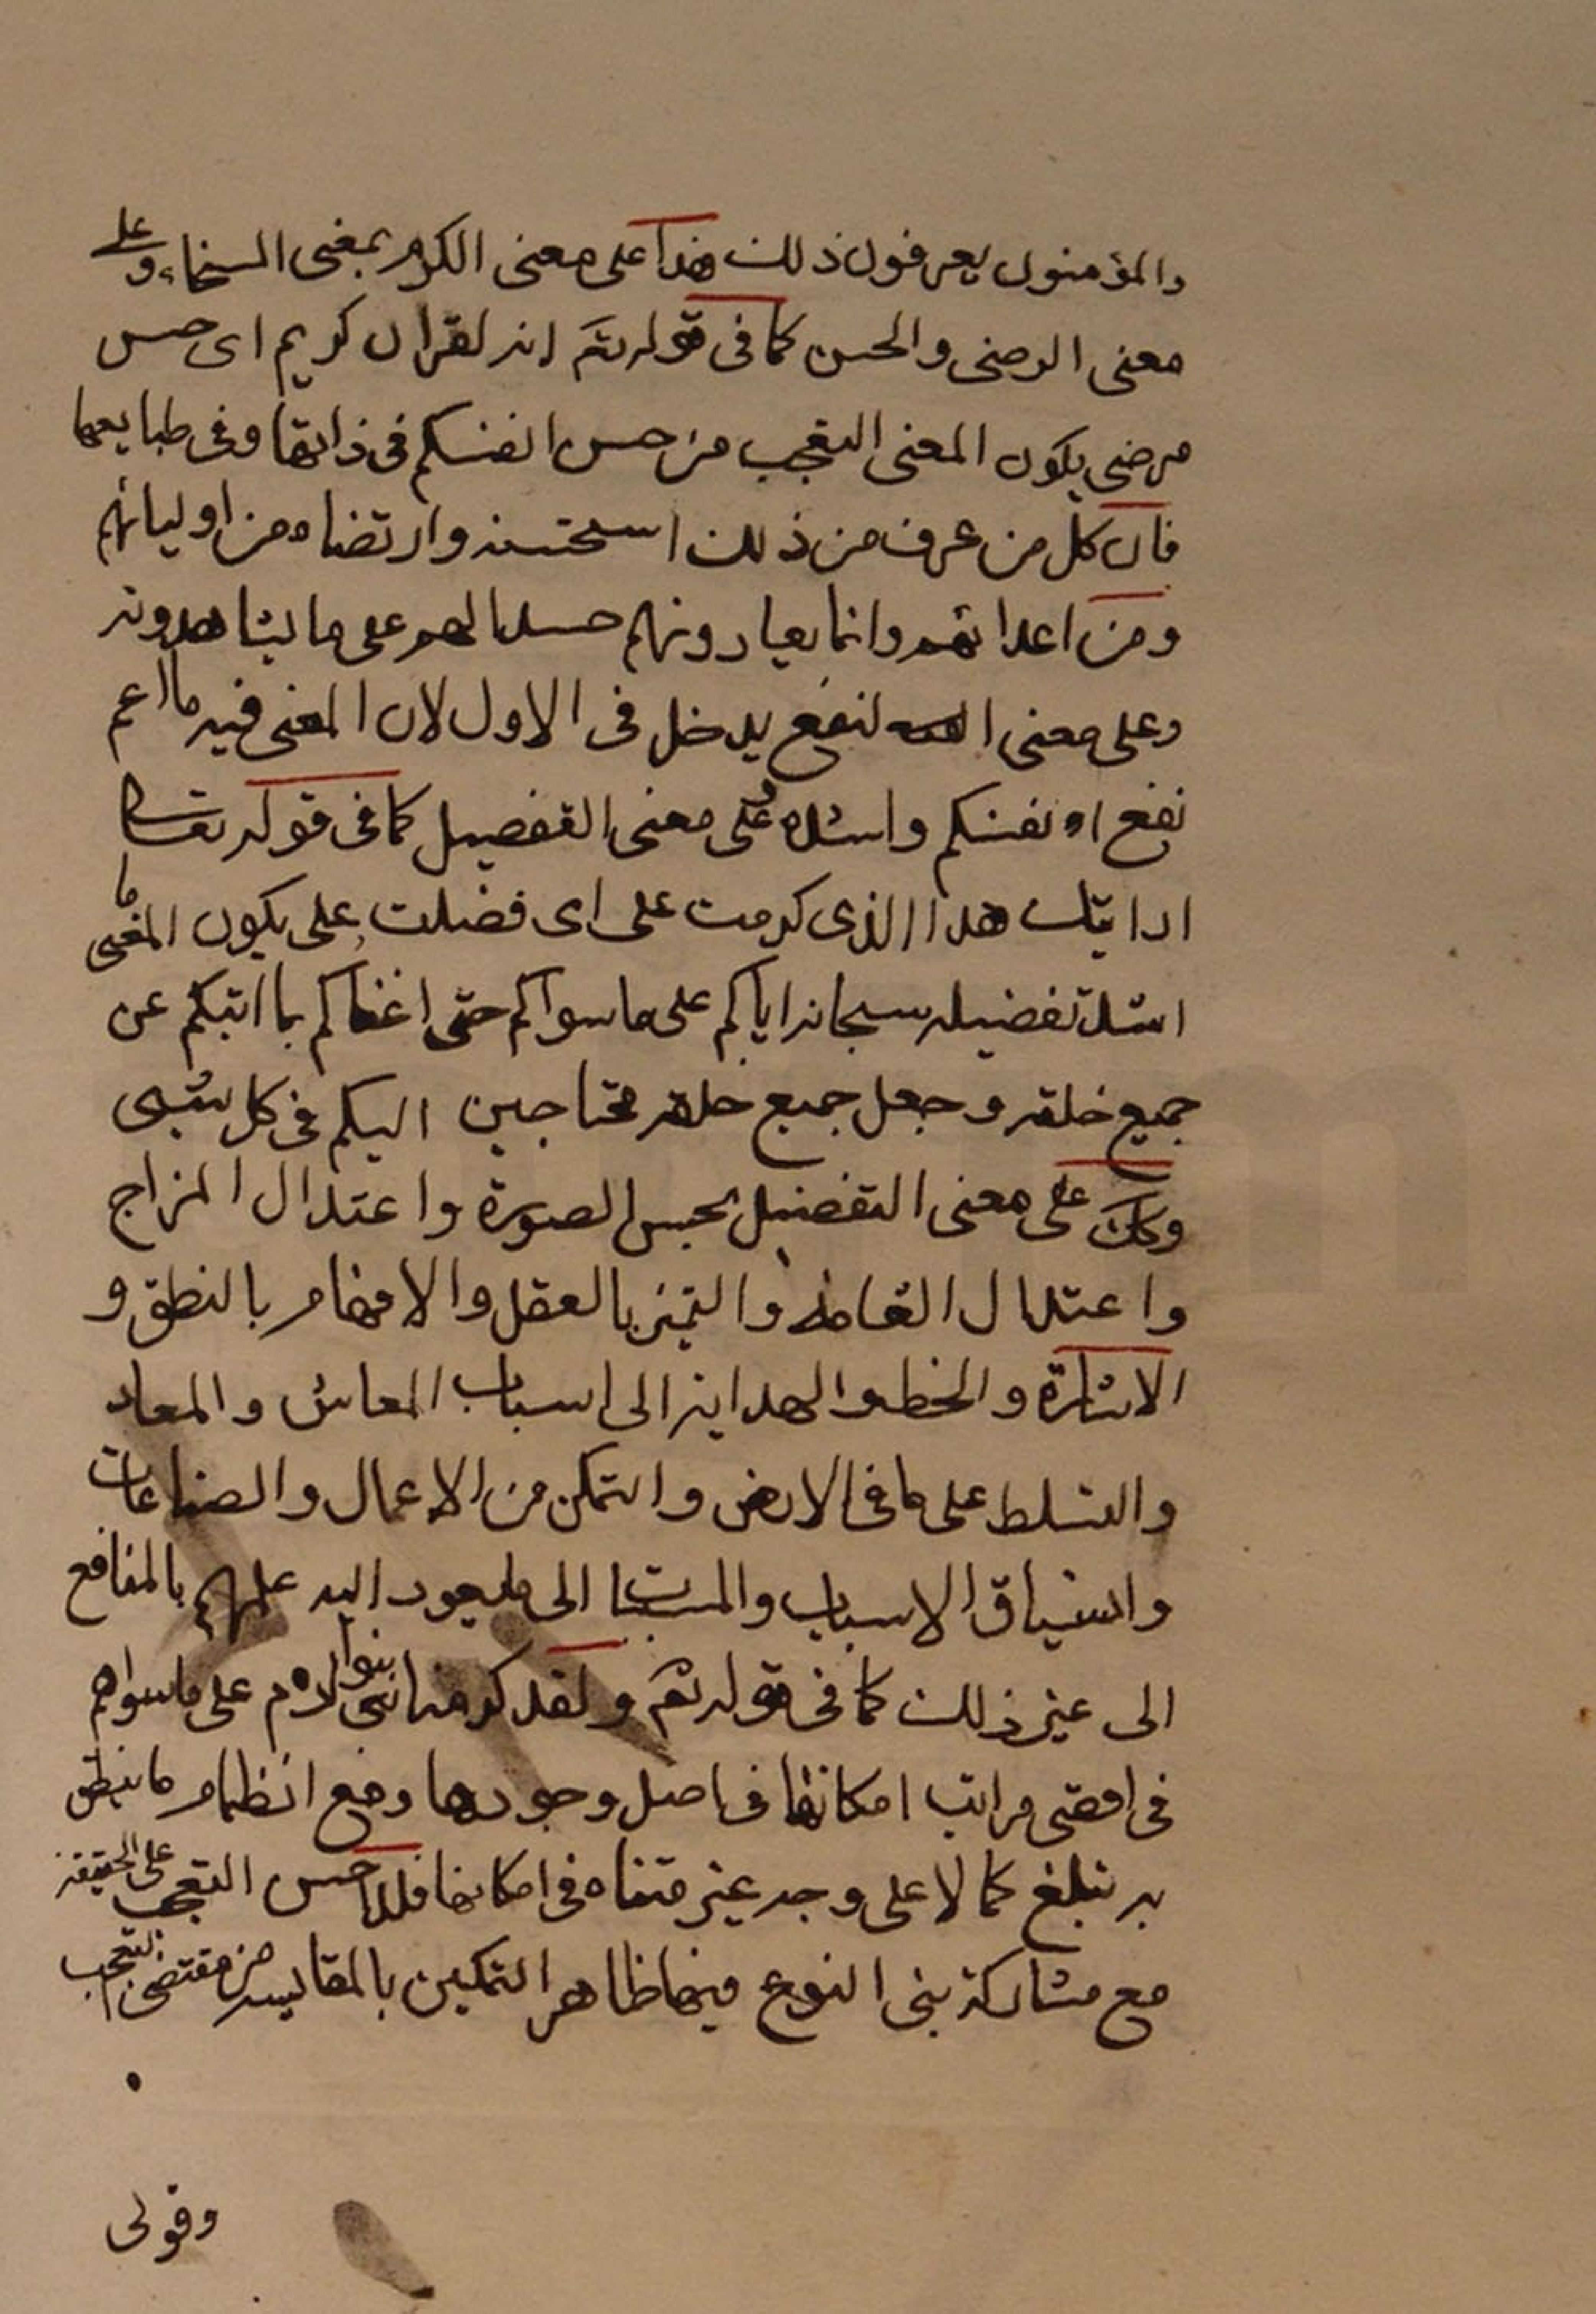 والمؤمنون يعرفون ذلك هذا على معنى الكرم بمعنى السخاء وعلى
معنى الرضى والحسن كما فى قوله تع انه لقران كريم اى حسن
مرضى يكون المعنى التعجب من حسن انفسكم فى ذاتها وفى طبايعها
فان كل من عرف من ذلك استحسنه وارتضاه من اوليائهم
ومن اعدائهم وانما يعادونهم حسدا لهم على ما يشاهدونه
وعلى معنى النفع يدخل فى الاول لان المعنى فيه ما اعم
نفع انفسكم واشده وعلى معنى التفضيل كما فى قوله تعالى
ارايتك هذا الذى كرمت على اى فضلت على يكون المعنى ما
اشد تفضيله سبحانه اياكم على ما سواكم حتى اغناكم بما اتيكم عن
جميع خلقه وجعل جميع خلقه محتاجين اليكم فى كل شىء
وكك على معنى التفضيل بحسن الصورة واعتدال المزاج
واعتدال القامة والتميز بالعقل والافهام بالنطق و
الاشارة والخط والهداية الى اسباب المعاش والمعاد
والتسلط على ما فى الارض والتمكن من الاعمال والصناعات
وانسياق الاسباب والمسببات الى ما يعود اليه عليهم بالمنافع
الى غير ذلك كما فى قوله تع ولقد كرمنا بنى ادم على ما سواهم
فى اقصى مراتب امكانها فى اصل وجودها ومع انضمام ما ينطق
به تبلغ كمالا على وجه غير متناه فى امكانها فلذا حسن التعجب على الحقيقة
مع مشاركة بنى النوع فيها ظاهر التمكين بالمقايسه من مقتضى التعجب
وقولى